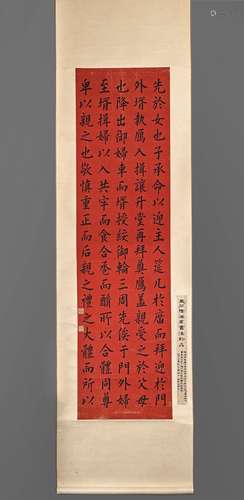 先於女也子承命以迎主人筵几於廟而拜迎於門
外壻執鴈入揖讓升堂再拜奠鴈蓋親受之於父母
也降出御婦車而壻授綏御輪三周先俟于門外婦
至壻揖婦以入共牢而食合卺而酳所以合體同尊
卑以親之也敬慎重正而后親之禮之大體而所以